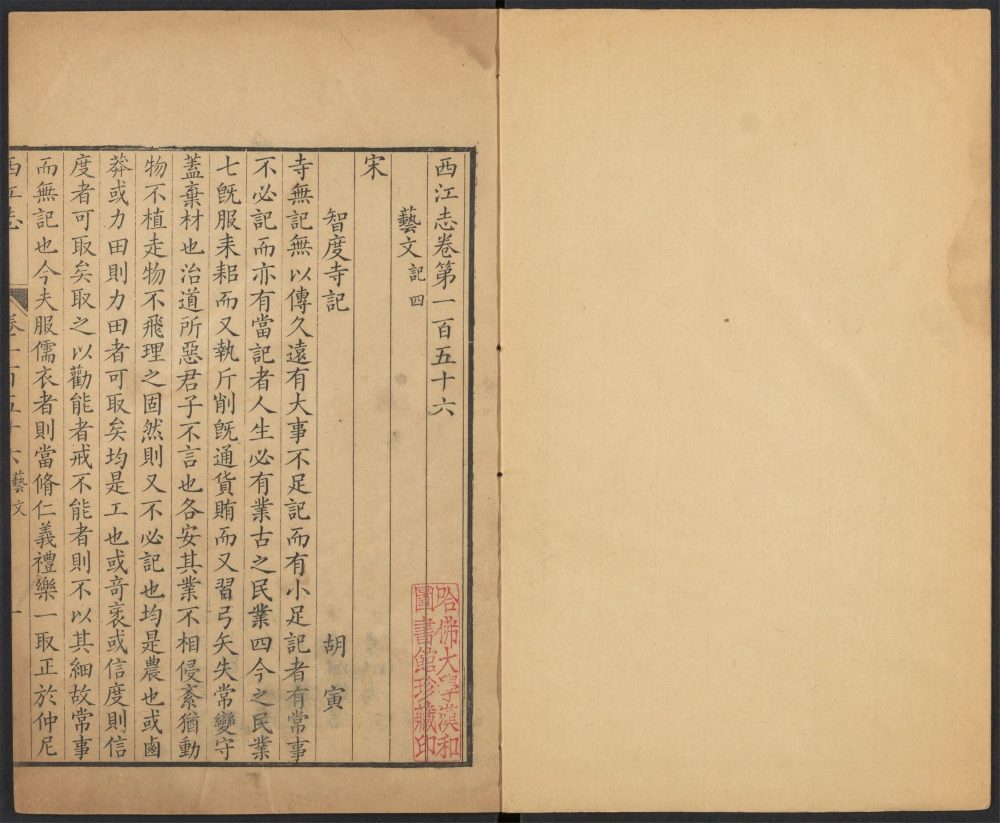 西江志卷第一百五十六
藝文記四
宋
智度寺記 胡寅
寺無記無以傳久遠有大事不足記而有小足記者有常事
不必記而亦有當記者人生必有業古之民業四今之民業
七旣服耒耜而又執斤削旣通貨賄而又習弓矢失常變守
蓋棄材也治道所惡君子不言也各安其業不相侵紊猶動
物不植走物不飛理之固然則又不必記也均是農也或鹵
莽或力田則力田者可取矣均是工也或竒衺或信度則信
度者可取矣取之以勸能者戒不能者則不以其細故常事
而無記也今夫服儒衣者則當脩仁義禮樂一取正於仲尼
西江志 卷一百五十六 藝文 一
哈佛大學漢和
圖書館珍藏印